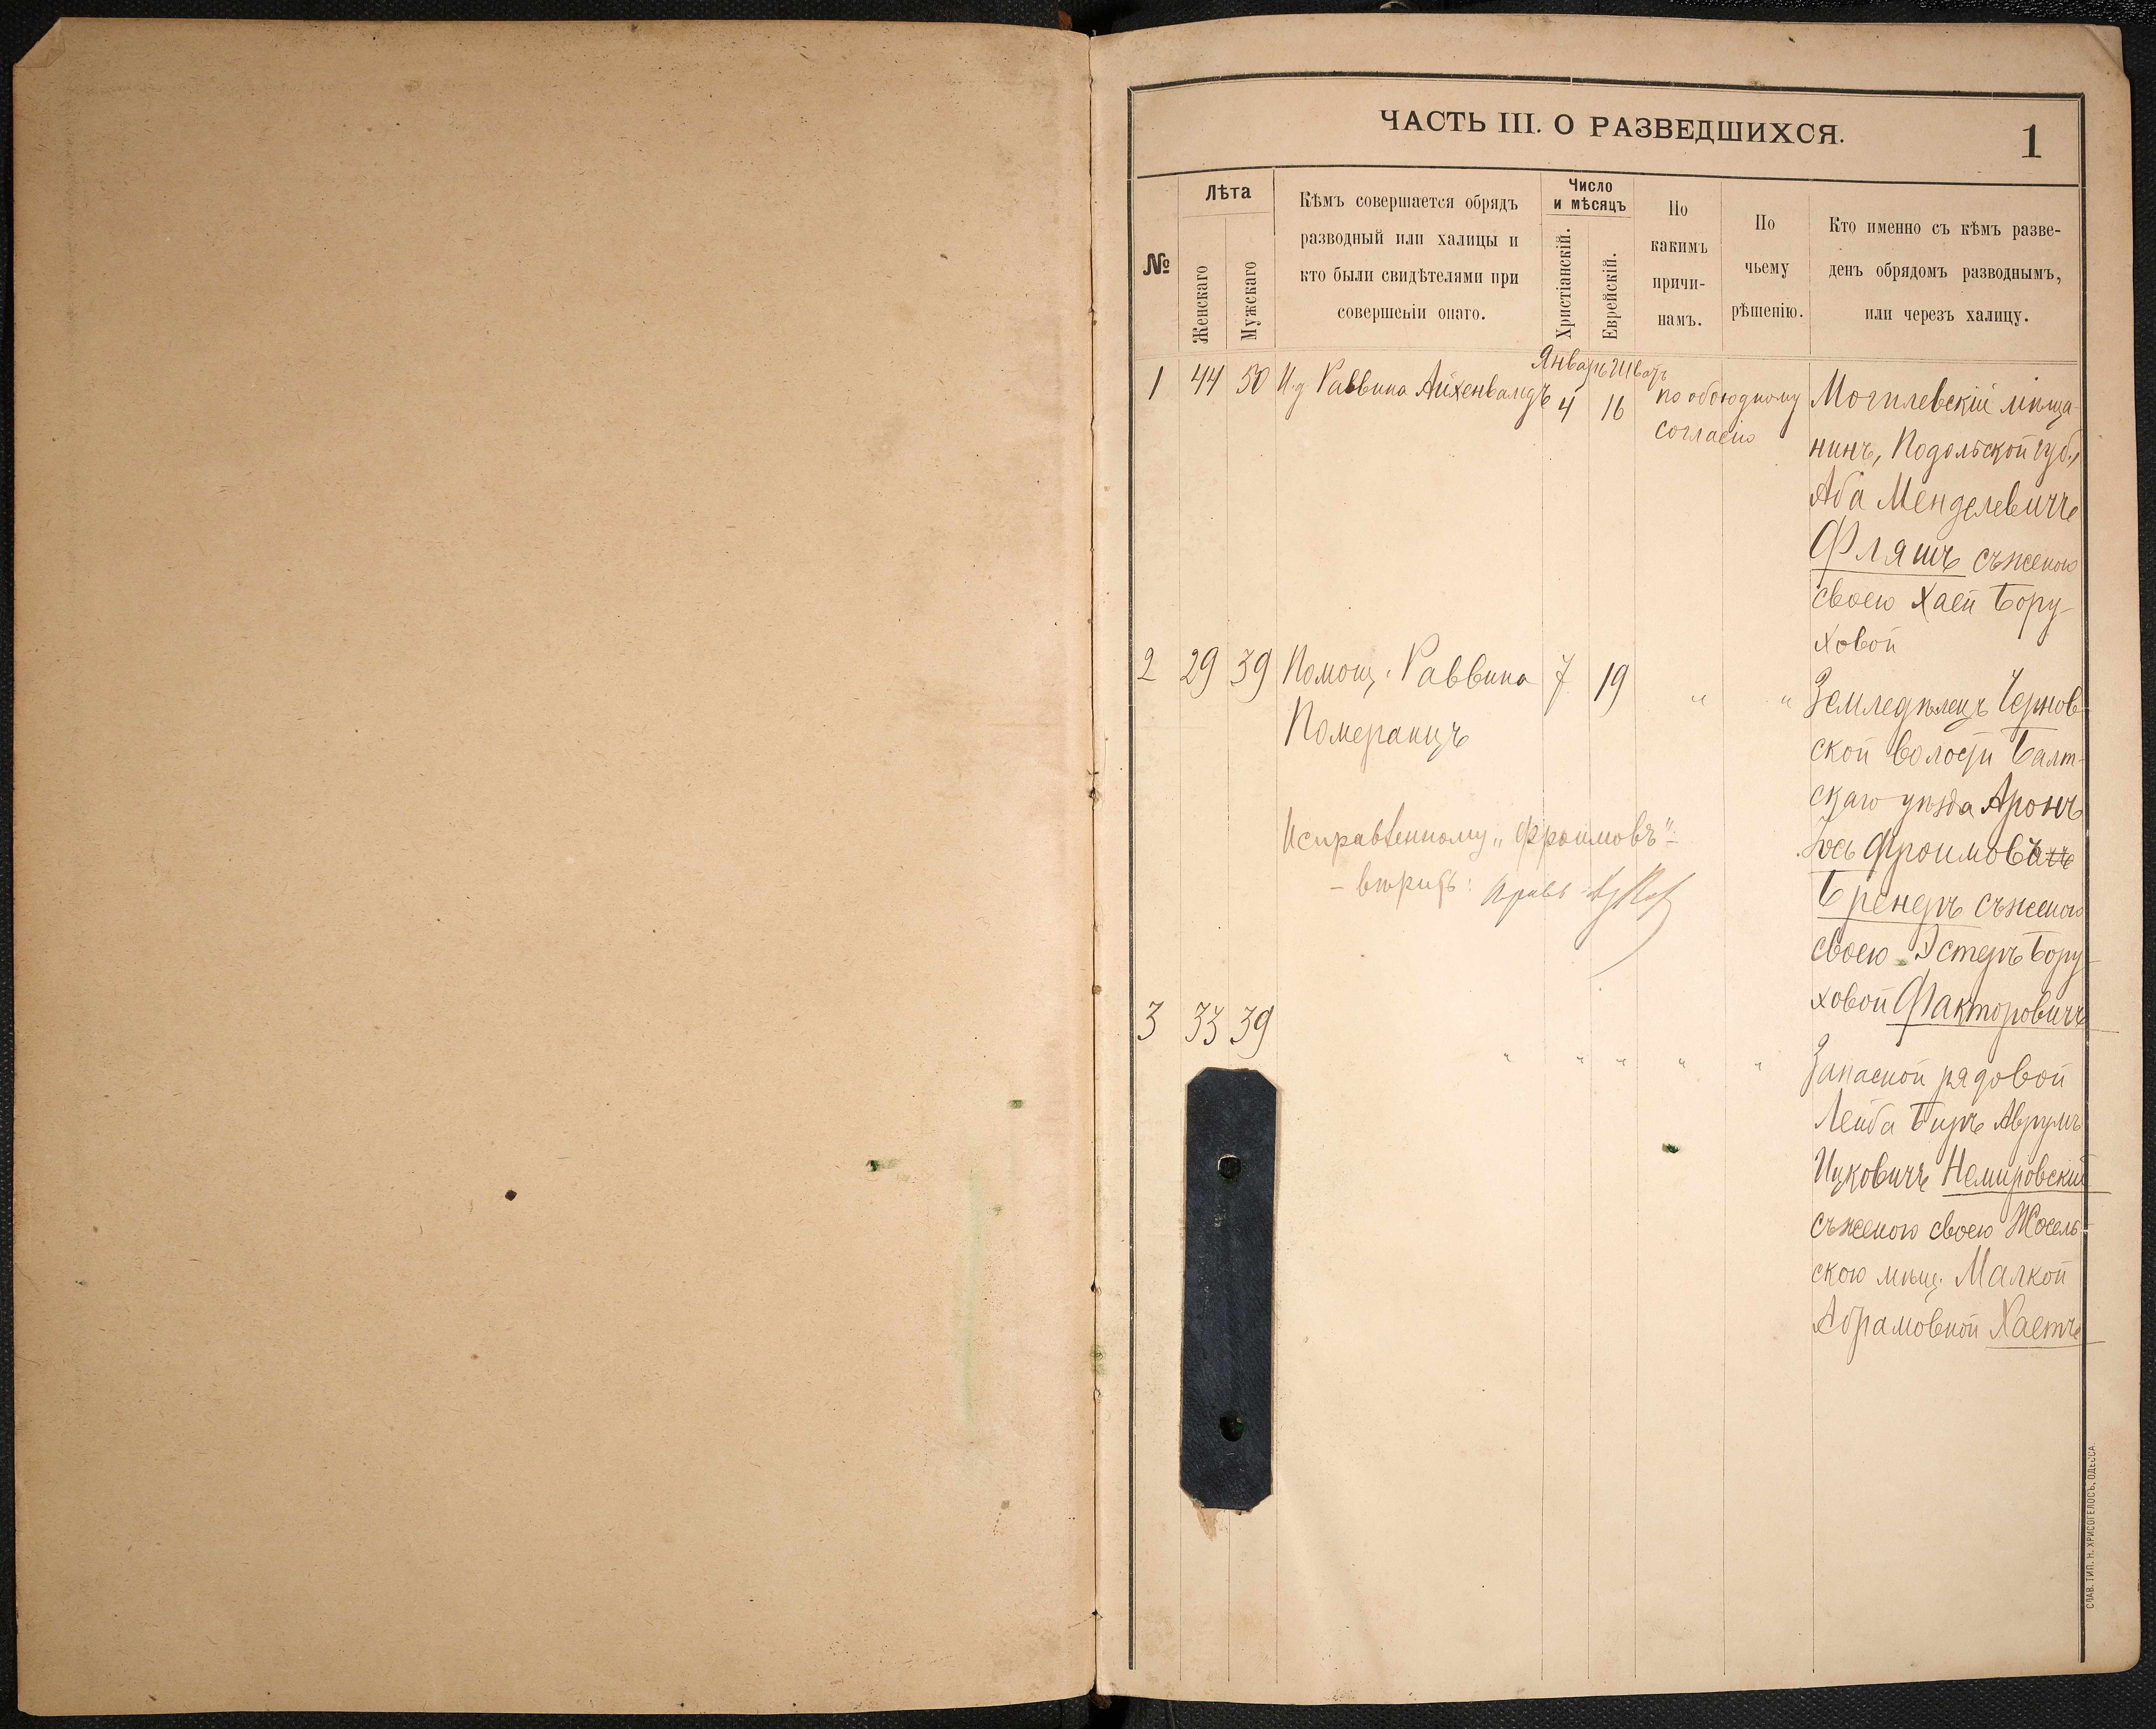 ЧАСТЬ III. О РАЗВЕДШИХСЯ.
1
№
Лѣта
Женскаго
Мужскаго
Кѣмъ совершается обрядъ
разводный или халицы и
кто были свидѣтелями при
совершеніи онаго.
Число
и мѣсяцъ
Христіанскій.
Еврейскій.
По
какимъ
причи-
намъ.
По
чьему
рѣшенію.
Кто именно съ кѣмъ разве-
денъ обрядомъ разводнымъ,
или черезъ халицу.
Январь Шватъ
1 44 50 И.д. Раввина Айхенвальдъ 4 16 по обоюдному
согласію
Могилевскій мѣща-
нинъ, Подольской губ.,
Аба Менделевичъ
Фляшъ съ женою
своею Хаей Бору-
ховой
2 29 39 Помощ. Раввина 7 19 " "
Померанцъ
Земледѣлецъ Чернов-
ской волости Балт-
скаго уѣзда Аронъ
Іось Фроимовъ
Брендеръ съ женою
своею Эстеръ Бору-
ховой Факторовичъ
Исправленному „Фроимовъ"-
- вѣрить:
3 33 39 " " " " "
Запасной рядовой
Лейба Биръ Аврумъ
Ицковичъ Немировскій
съ женою своею
скою мѣщ. Малкой
Абрамовной Хаетъ
СЛАВ. ТИП. Н. ХРИСОГЕЛОСЪ, ОДЕССА.